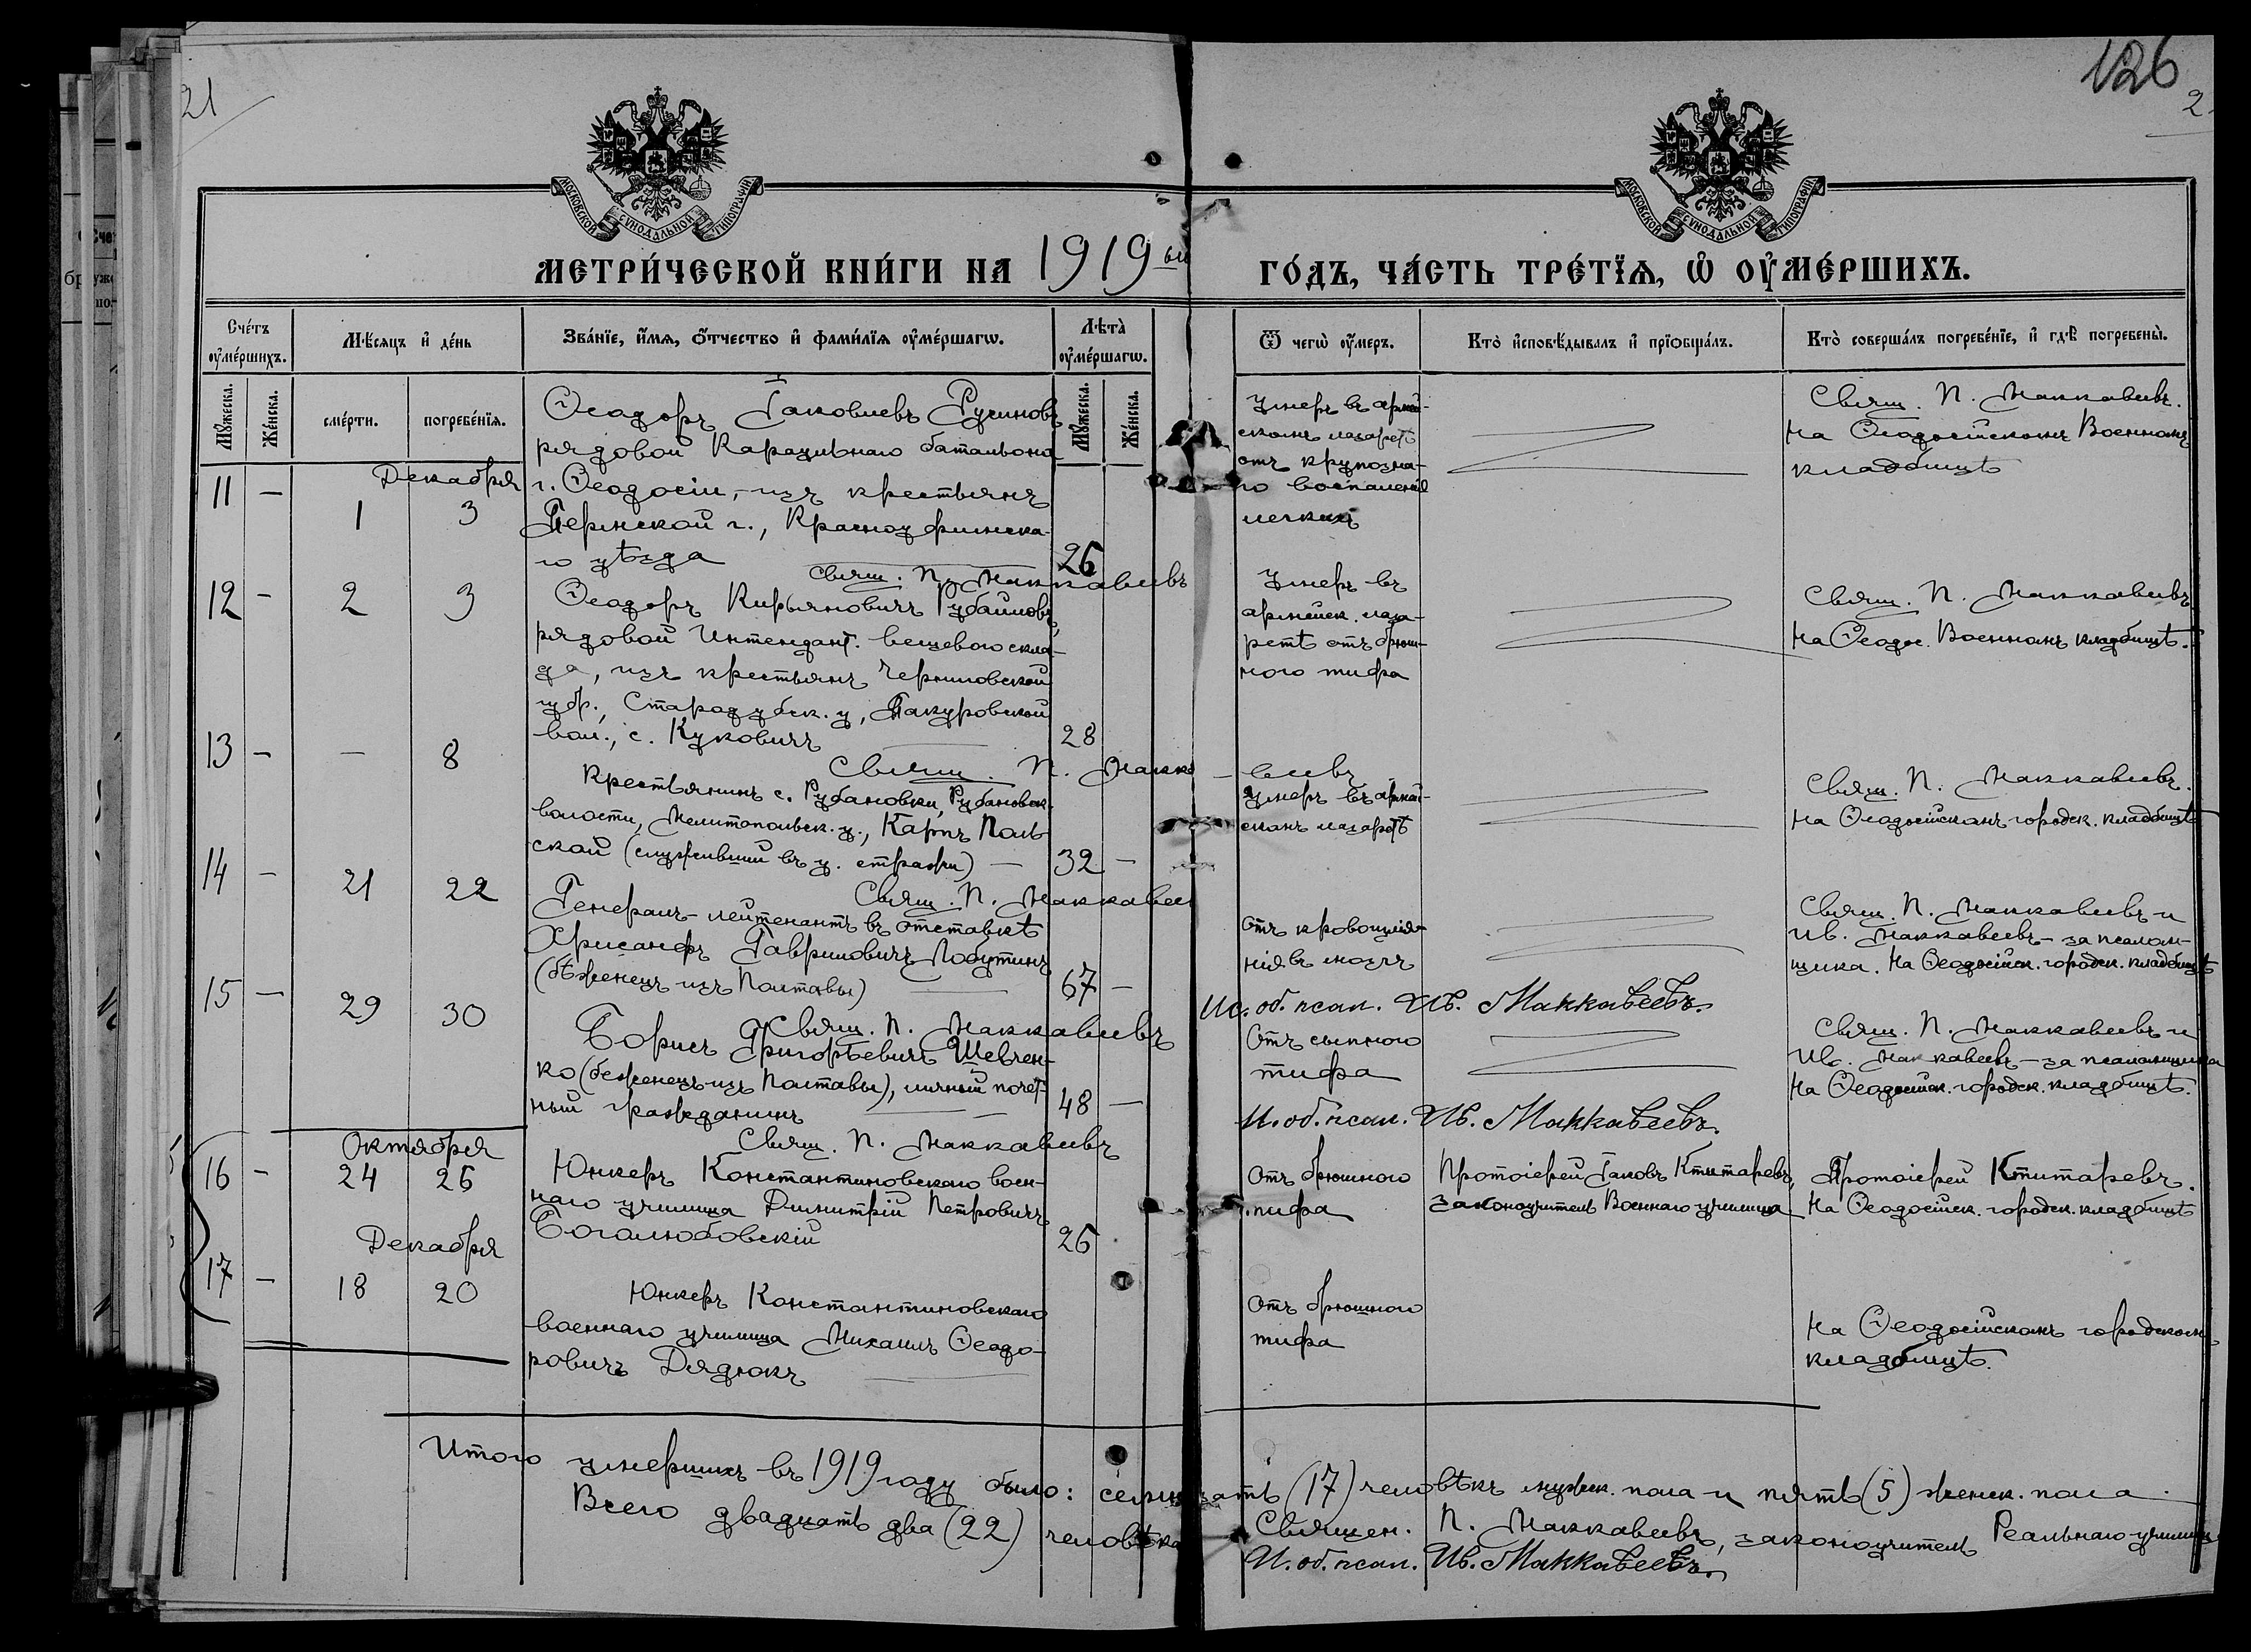 21
126
2
МОСКОВСКОЙ СУНОДАЛЬНОЙ ТИПОГРАФІИ
МОСКОВСКОЙ СУНОДАЛЬНОЙ ТИПОГРАФІИ
МЕТРИ́ЧЕСКОЙ КНИ́ГИ НА 1919 ый ГО́ДЪ, ЧА́СТЬ ТРЕ́ТЇѦ, Ѡ҆ ОУ҆МЕ́РШИХЪ.
Сче́тъ оу҆ме́ршихъ.
Мѣ́сѧцъ и҆ де́нь
Зва́нїе, и҆́мѧ, ѻ҆́тчество и҆ фами́лїѧ оу҆ме́ршагѡ.
Лѣ̀та оу҆ме́ршагѡ.
Ѿ чегѡ̀ оу҆́меръ.
Кто̀ и҆сповѣ́дывалъ и҆ прїѡбща́лъ.
Кто̀ соверша́лъ погребе́нїе, и҆ гдѣ̀ погребены̀.
Мꙋ́жеска.
Же́нска.
сме́рти.
погребе́нїѧ.
Мꙋ́жеска.
Же́нска.
Декабря
11 — 1 3
Ѳеодоръ Іаковлевъ Русиновъ
рядовой Караульнаго батальона
г. Ѳеодосіи, - изъ крестьянъ
Пермской г., Красноуфимска-
го уѣзда
26
Умеръ въ армей-
скомъ лазаретѣ
отъ крупозна-
го воспаленія
легкихъ
Свящ. П. Маккавеевъ.
На Ѳеодосійскомъ Военномъ
кладбищѣ
Свящ. П. Маккавеевъ
12 — 2 3
Ѳеодоръ Кирьяновичъ Рубайловъ,
рядовой Интендант. вещевого скла-
да, изъ крестьянъ Черниговской
губ., Стародубск. у.,
вол., с. Куковичъ
28
Умеръ въ
армейск. лаза-
ретѣ отъ брюш-
ного тифа
Свящ. П. Маккавеевъ
На Ѳеодос. Военномъ кладбищѣ.
Свящ. П. Маккавеевъ
13 — — 8
Крестьянинъ с. Рубановки, Рубановск.
волости, Мелитопольск. у., Карпъ Поль
ской (служившій въ у. стражи) —
32 —
Умеръ въ армей-
скомъ лазаретѣ
Свящ. П. Маккавеевъ.
На Ѳеодосійскомъ городск. кладбищѣ
Свящ. П. Маккавеев
14 — 21 22
Генералъ-лейтенантъ въ отставкѣ
Хрисанфъ Гавриловичъ Лобутинъ
(бѣженецъ изъ Полтавы)
67 —
Отъ кровоизлія-
нія въ мозгъ
Свящ. П. Маккавеевъ и
Ив. Маккавеевъ - за псалом-
щика. На Ѳеодосійск. городск. кладбищѣ
Ис. об. псал. Ив. Маккавеевъ.
Свящ. П. Маккавеевъ
15 — 29 30
Борисъ Григорьевичъ Шевчен-
ко (беженецъ изъ Полтавы), личный почет-
ный гражданинъ
48 —
Отъ сыпного
тифа
Свящ. П. Маккавеевъ и
Ив. Маккавеевъ - за псаломщика
На Ѳеодосійск. городск. кладбищѣ.
И. об. псал. Ив. Маккавеевъ.
Свящ. П. Маккавеевъ
Октября
16 — 24 26
Юнкеръ Константиновскаго воен-
наго училища Димитрій Петровичъ
Боголюбовскій
26
Отъ брюшного
тифа
Протоіерей Іаковъ Ктитаревъ,
законоучитель Военнаго училища
Протоіерей Ктитаревъ.
На Ѳеодосійск. городск. кладбищѣ
Декабря
17 — 18 20
Юнкеръ Константиновскаго
военнаго училища Михаилъ Ѳеодо-
ровичъ Дядюкъ
Отъ брюшного
тифа
На Ѳеодосійскомъ городском
кладбищѣ.
Итого умершихъ въ 1919 году было: семнадцать (17) человѣкъ мужск. пола и пять (5) женск. пола.
Всего двадцать два (22) человѣка
Священ. П. Маккавеевъ, законоучитель Реальнаго училища
И. об. псал. Ив. Маккавеевъ.